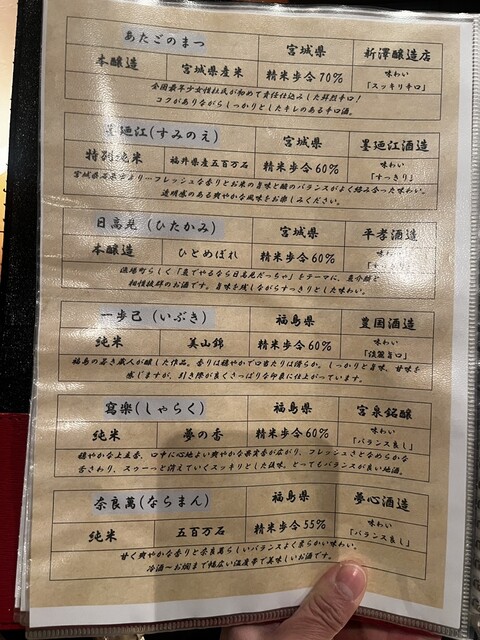 あたごのまつ 宮城県 新澤醸造店
本醸造 宮城県産米 精米歩合70% 味わい
「スッキリ辛口」
全国最年少女性杜氏が初めて責任仕込みした鮮烈辛口!
コクがありながらしっかりとしたキレのある辛口酒。
墨廼江(すみのえ) 宮城県 墨廼江酒造
特別純米 福井県産五百万石 精米歩合60% 味わい
「すっきり」
宮城県石巻市より…フレッシュな香りとお米の旨味と酸のバランスがよく絡み合った味わい。
透明感のある爽やかな風味をお楽しみください。
日高見(ひたかみ) 宮城県 平孝酒造
本醸造 ひとめぼれ 精米歩合60% 味わい
港陽町らしく「魚でやるなら日高見だっちゃ」をテーマに、魚介類と
相性抜群のお酒です。旨味を残しながらすっきりとした味わい。
一歩己(いぶき) 福島県 豊国酒造
純米 美山錦 精米歩合60% 味わい
「淡麗旨口」
福島の若き蔵人が醸した作品。香りは穏やかで口当たりは滑らか。しっかりと旨味、甘味を
感じますが、引き際が良くさっぱりな印象に仕上がっています。
寫楽(しゃらく) 福島県 宮泉銘醸
純米 夢の香 精米歩合60% 味わい
「バランス良し」
穏やかな上立香、口中に心地よい爽やかな果実香が広がり、フレッシュさとなめらかな
舌ざわり、スゥーっと消えていくスッキリとした後味。とってもバランスが良い地酒。
奈良萬(ならまん) 福島県 夢心酒造
純米 五百万石 精米歩合55% 味わい
「バランス良し」
甘く爽やかな香りと奈良萬らしいバランスよく柔らかい味わい。
冷酒~お燗まで幅広い温度帯で美味しいお酒です。